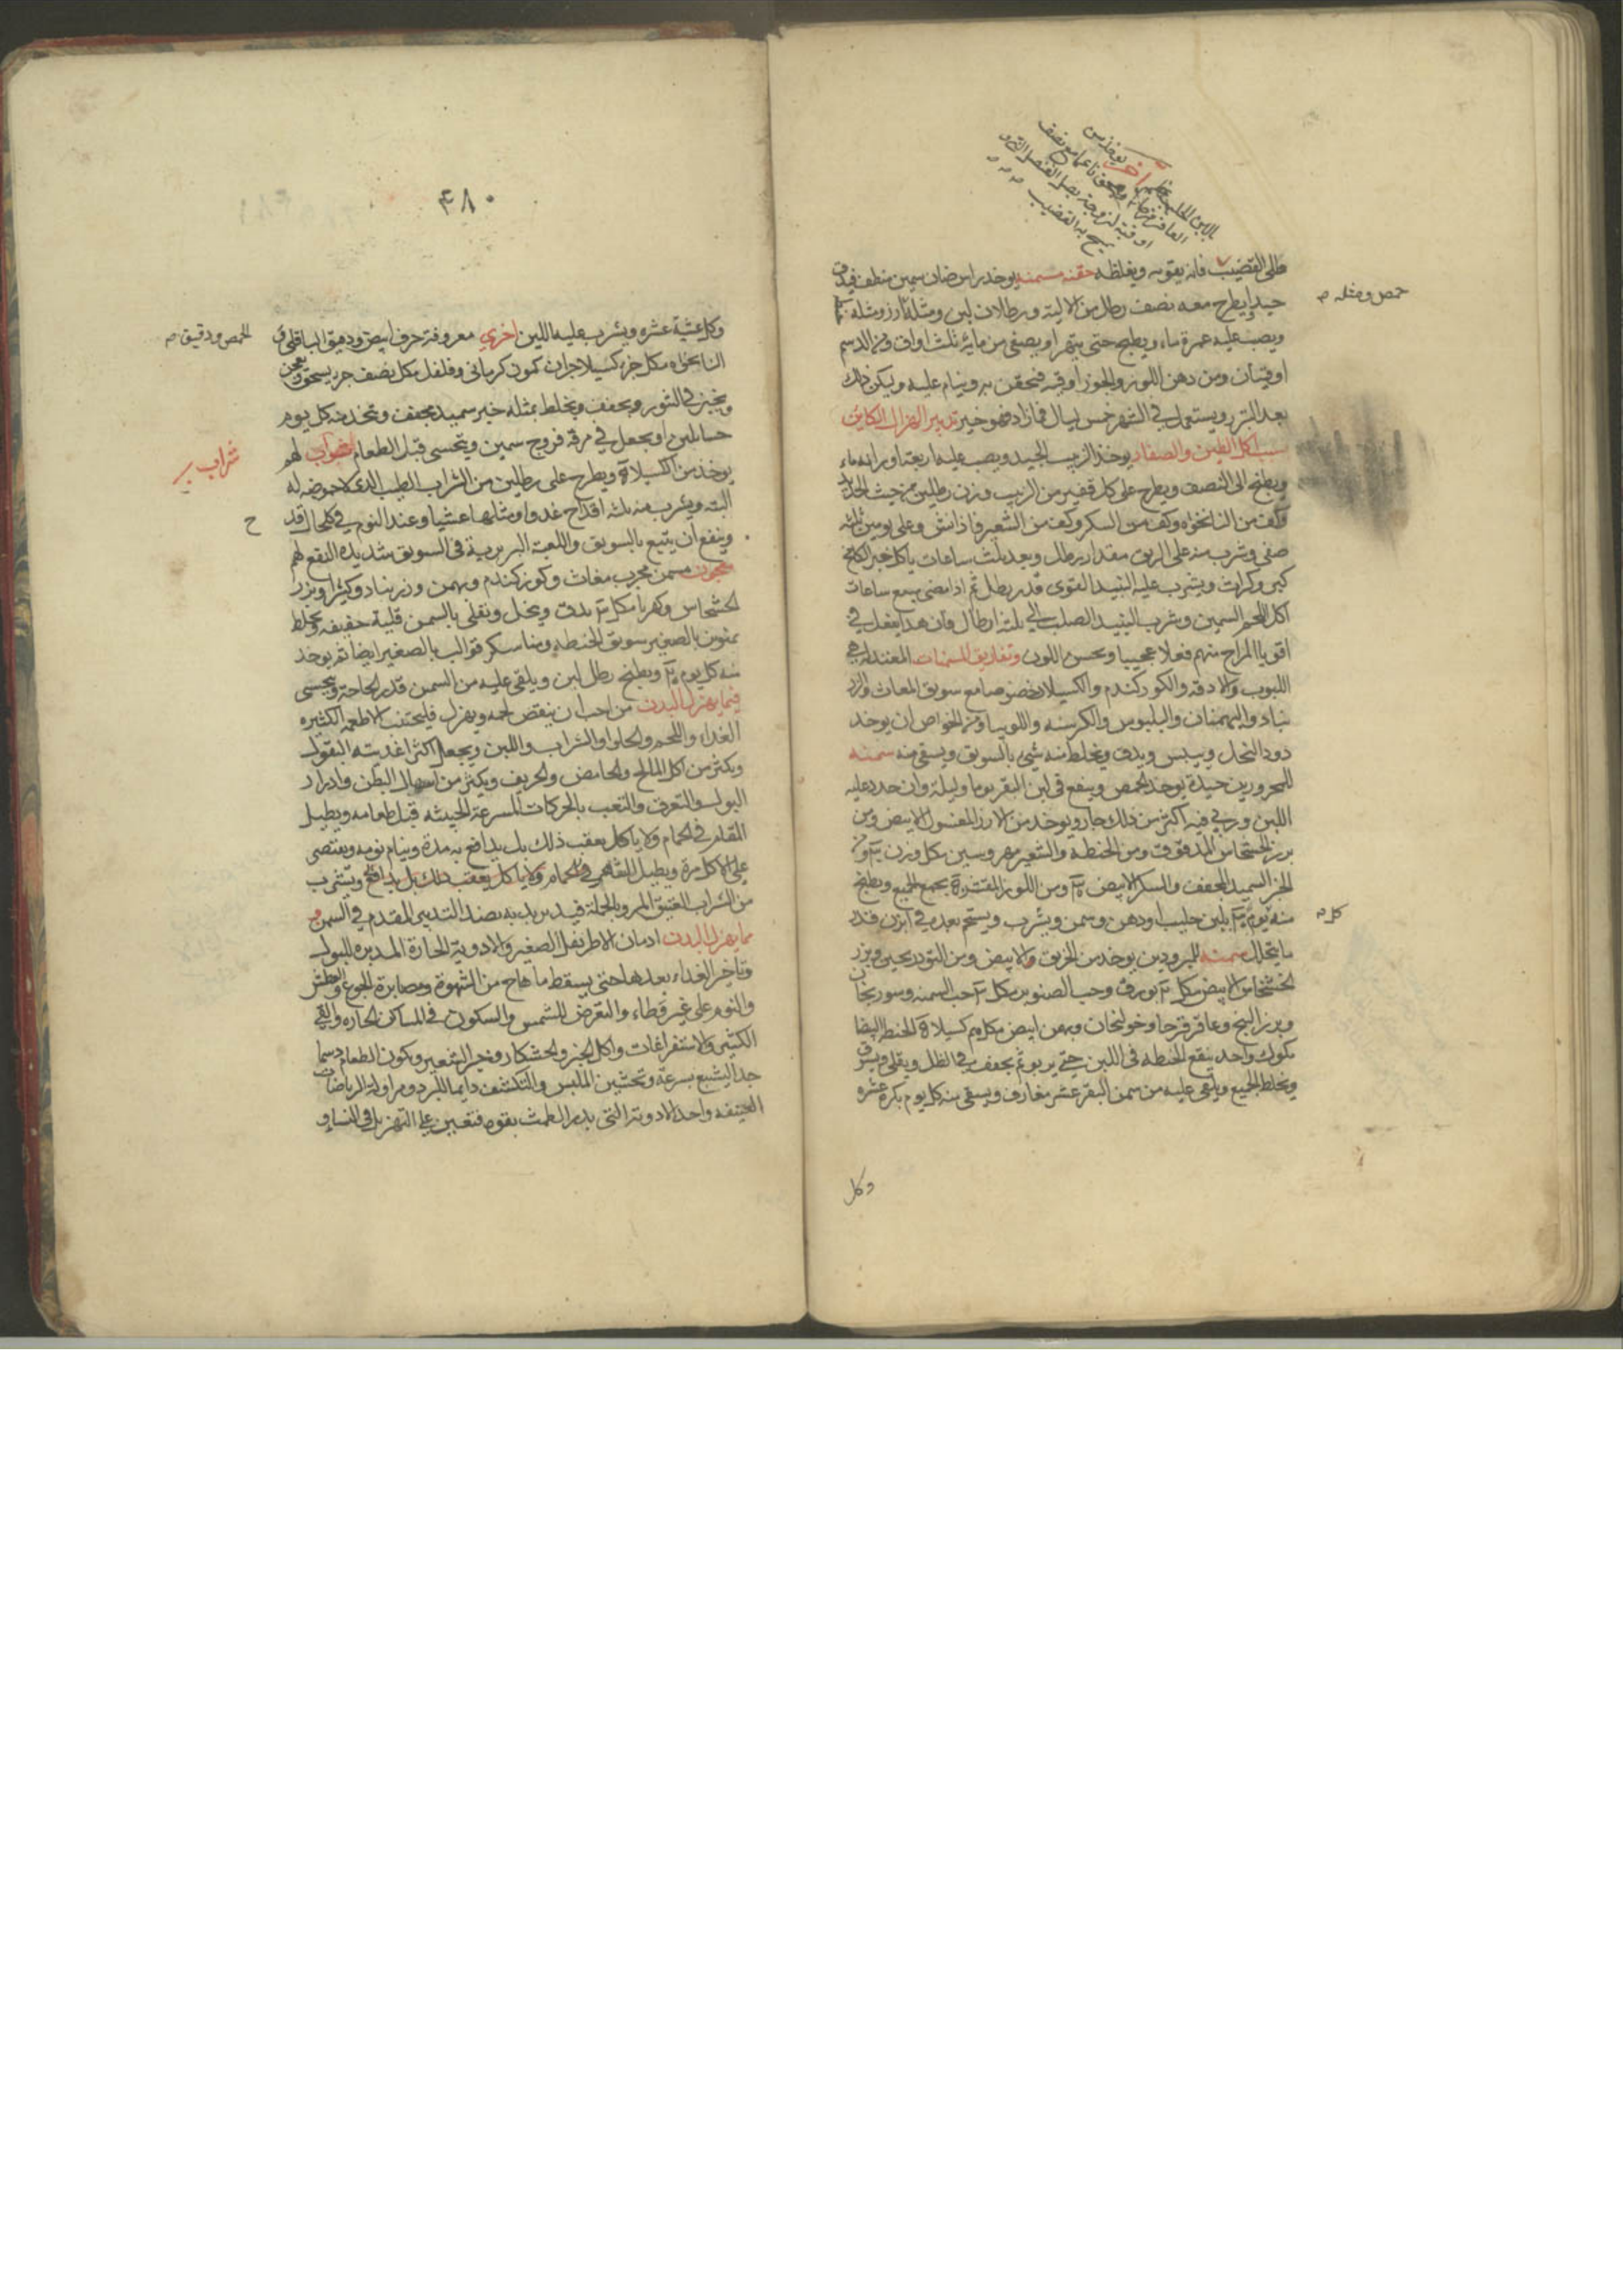 طلي القضيب فانه يقويه ويغلظه حقنه مسمنه يوخد راس ضان سمين منظف فيدق
جيدا ويطرح معه نصف رطل من الالية ورطلان لبن ومثله ارز ومثله
ويصب عليه غمرة ماء ويطبخ حتى يتهرا ويصفى من مايه ثلث اواق ومن الدسم
اوقيتان ومن دهن اللوز والجوز اوقيه فتحقن به وينام عليه ويكن ذلك
بعد التبرز ويستعمل في الشهر خمس ليال فمازاد فهو خير تدبير الهزال الكاين
بسبب اكل الطين والصفار يوخذ الزبيب الجيد ويصب عليه اربعة اوزانه ماء
ويطبخ الى النصف ويطرح على كل قفيز من الزبيب وزن رطلين من خبث الحديد
وكف من النانخواه وكف من السكر وكف من الشعير فاذا نش وعلى يومين ثلثه
صفى وشرب منه على الريق مقدار رطل وبعد ثلث ساعات ياكل خبز الكامخ
كبر وكراث ويشرب عليه النبيذ القوى قدر رطل ثم اذا مضى سبع ساعات
اكل اللحم السمين وشرب النبيذ الصلب الى ثلثه ارطال فان هذا يفعل في
اقويا المزاج منهم فعلا عجيبا ويحسن اللون وتفاريق المسمنات المعتدله هي
اللبوب والادقه والكوركندم والكسيلا خصوصا مع سويق المغاث والزر
نباد والبهمنان والبلبوس والكرسنه واللوبيا ومن الخواص ان يوخد
دود النحل وييبس ويدق ويخلط منه شي بالسويق ويسقى منه سمنه
للمحرورين جيدة يوخد الحمص وينقع في لبن البقر يوما وليلة وان جدد عليه
اللبن وربي فيه اكثر من ذلك جاز ويوخد من الارز المغسول الابيض ومن
بزر الخشخاش المدقوق ومن الحنطه والشعير مهروسين مكل وزن
الخبز السميد المجفف والسكر الابيض ومن اللوز المقشرة يجمع الجميع ويطبخ
منه يوم بلبن حليب او دهن وسمن ويشرب ويستحم بعده في ابزن قدر
ما يتحلل سمنه للمبرودين يوخد من الخربق والابيض ومن التودريحين وبزر
الخشخاش الابيض مكل بورق وحب الصنوبر مكل حب السمنه وسورنجان
وبزر البنج وعاقرقرحا وخولنجان وبهمن ابيض مكل كسيلا الحنطه البيضا
مكوك واحد ينقع الحنطه في اللبن حتى يربو ثم يجفف في الظل ويقلى ويدق
ويخلط الجميع ويلقى عليه من سمن البقر عشر مغارف ويسقى منه كل يوم بكره عشره
حمص ومثله
كل
وكل
٤٨٠
وكل عشية عشره ويشرب عليه اللبن اخري معروفة حرف ابيض ودقيق الباقلى و
النانخواه مكل جزء كسيلا جزان كمون كرمانى وفلفل مكل نصف جزء يسحق ويعجن
ويخبز في التنور ويجفف ويخلط بمثله خبز سميد مجفف ويتخد منه كل يوم
حسا بلبن او يجعل في مرقة فروج سمين ويتحسى قبل الطعام لهم
يوخد من الكسيلا ويطرح على رطلين من الشراب الطيب الدى لا حموضه له
البته ويشرب منه ثلثه اقداح غدوا ومثلها عشيا وعند النوم في كل حال قد
وينفع ان يتبع بالسويق واللعبة البربرية في السويق شديده النفع لهم
معجون مسمن مجرب مغاث وكوزكندم وبهمن وزرنباد وكثيرا وبزر
الخشخاش وكهربا مكل يدق وينخل ويغلى بالسمن قلية خفيفه ويخلط
بمنوين بالصغير سويق الحنطه ومنا سكر قوالب بالصغير ايضا ثم يوخد
منه كل يوم ويطبخ رطل لبن ويلقى عليه من السمن قدر الحاجة ويتحسى
فيما يهزل البدن من احب ان ينقص لحمه ويهزل فليجتنب الاطعمه الكثيره
الغداء واللحم والحلوا والشراب واللبن ويجعل اكثر اغديته البقول
ويكثر من اكل المالح والحامض والحريف ويكثر من اسهال البطن وادرار
البول والتعرق والتعب بالحركات المسرعة الحيثه قبل طعامه ويطيل
المقام في الحمام ولا ياكل بعقب ذلك بل يدافع به مدة وينام نومه ويقتصى
على الاكل مرة ويطيل المقام في الحمام ولا ياكل بعقب ذلك بل يدافع ويشرب
من الشراب العتيق المر وبالجملة فيدبر بدنه بضد التدبير المقدم في السمن
مما يهزل البدن ادمان الاطريفل الصغير والادوية الحارة المدره للبول
وتاخر الغداء بعدها حتى يسقط ما هاج من الشهوة ومصابرة الجوع والعطش
والنوم على غير وطاء والتعرض للشمس والسكون في المساكن الحاره والقي
الكثير والاستفراغات واكل الخبز الخشكار وخبز الشعير ويكون الطعام دسما
جدا ليشبع بسرعة وتخشين الملبس والتكشف دايما للبرد ومزاولة الرياضات
العنيفه واحد الادوية التي يدر الطمث بقوه فتعين على التهزيل في النساء و
الحمص ودقيق
شراب
ح